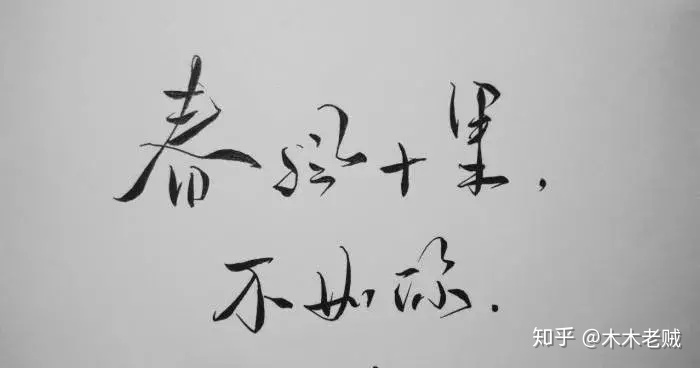 春风十里,
不如你.
知乎 @木木老贼